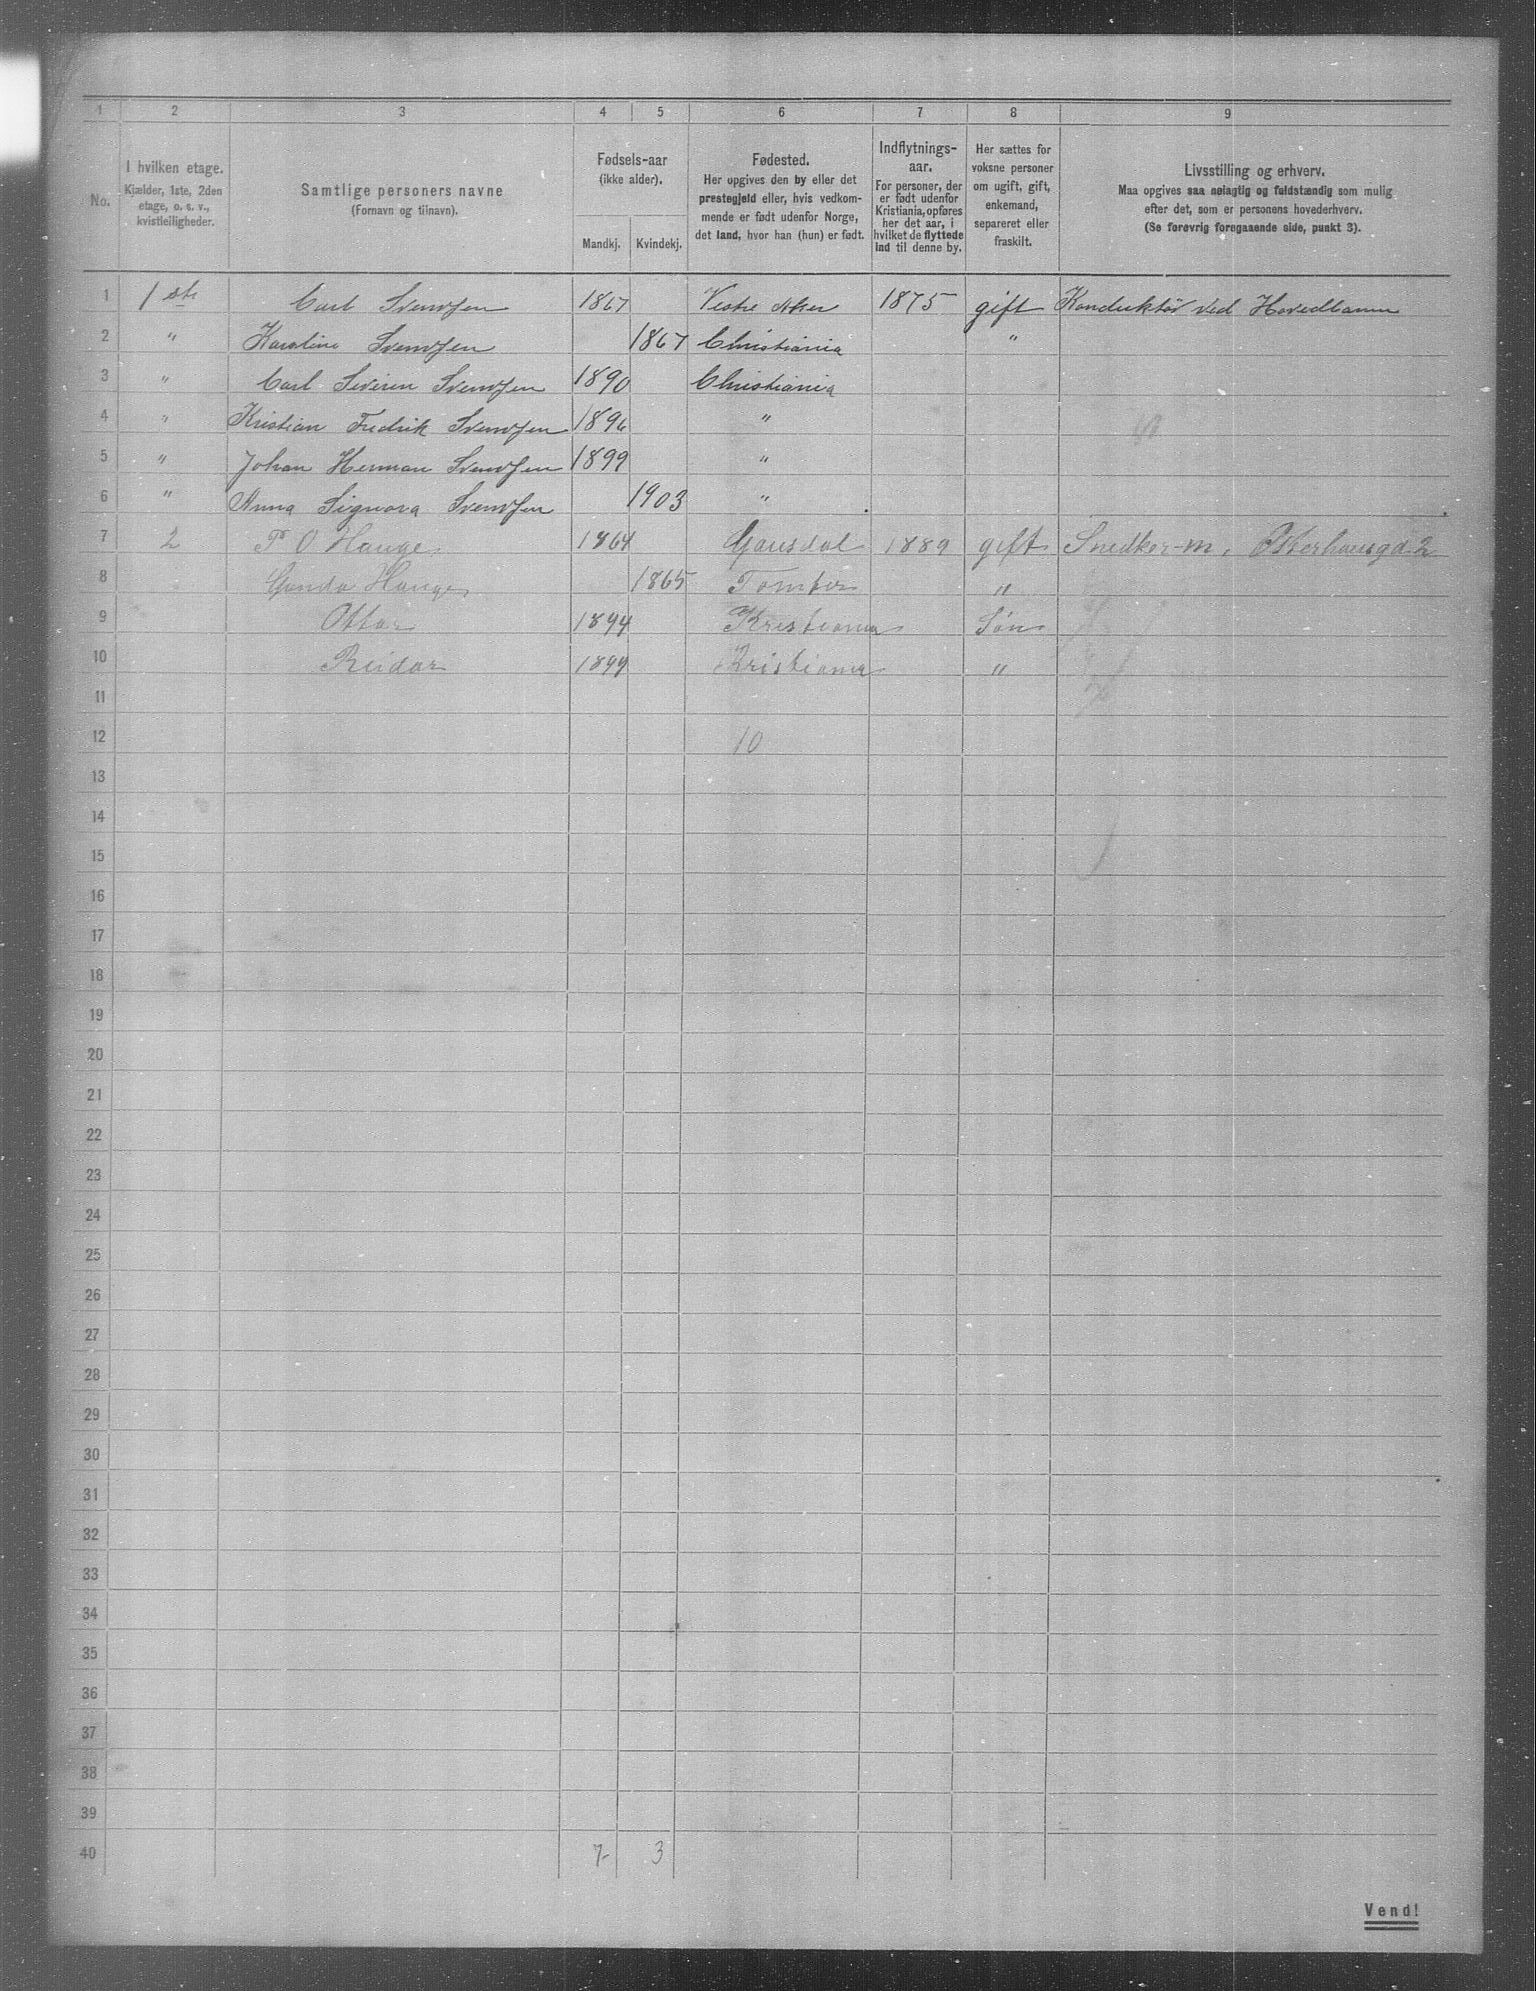 1 2 3 4 5 6 7 8 9
No.
I hvilken etage.
Kjælder, 1ste, 2den
etage, o. s. v.,
kvistleiligheder.
Samtlige personers navne
(Fornavn og tilnavn).
Fødsels-aar
(ikke alder).
Mandkj. Kvindekj.
Fødested.
Her opgives den by eller det
prestegjeld eller, hvis vedkom-
mende er født udenfor Norge,
det land, hvor han (hun) er født.
Indflytnings-
aar.
For personer, der
er født udenfor
Kristiania, opføres
her det aar, i
hvilket de flyttede
ind til denne by.
Her sættes for
voksne personer
om ugift, gift,
enkemand,
separeret eller
fraskilt.
Livsstilling og erhverv.
Maa opgives saa nøiagtig og fuldstændig som mulig
efter det, som er personens hovederhverv.
(Se forøvrig foregaaende side, punkt 3).
1 1 ste Carl Svendsen 1867 Vestre Aker 1875 gift Konduktør ved Hovedbanen
2 " Karoline Svendsen 1867 Christiania "
3 " Carl Severin Svendsen 1890 Christiania
4 " Kristian Fredrik Svendsen 1896 "
5 " Johan Herman Svendsen 1899 "
6 " Anna Signora Svendsen 1903 "
7 2 P O Hauge 1864 Gausdal 1889 gift Snedker-m. Osterhausgd 2
8 Gunda Hauge 1865 Tomter "
9 Ottar 1894 Kristiania Søn
10 Reidar 1899 Kristiania "
11
12 10
13
14
15
16
17
18
19
20
21
22
23
24
25
26
27
28
29
30
31
32
33
34
35
36
37
38
39
40 7 3
Vend!